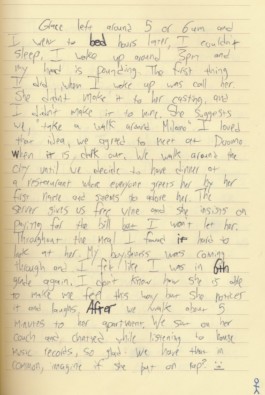 Grace left around 5 or 6am and
I went to bed hours later, I couldn't
sleep, I woke up around 3pm and
my head is pounding. The first thing
I did when I woke up was call her
She didn't make it to her casting, and
I didn't make it to  She suggests
we take a walk around Milano I loved
that idea, we agreed to meet at Duomo
when it is dark out. We walk around the
city until we decide to have dinner at
a restaurant where everyone greets her by her
first name and seems to adore her. The
server gives us free wine and she insists on
paying for the bill but I won't let her.
Throughout the meal I found it hard to
look at her. My  was coming
through and I felt like I was in 6th
grade again, I don't know how she is able
to make me feel this way but she notices
it and laughs. After we walk about 5
minutes to her apartment. We sat on her
couch and  while listening to house
music records, so glad we have that in
common, imagine if she put on rap?